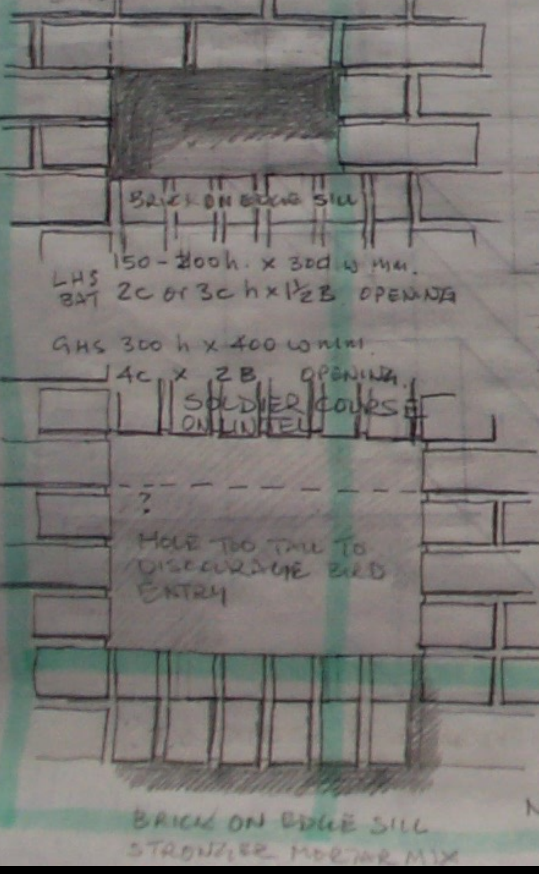 BRICK ON EDGE SILL
150-200h. x 300 w mm.
LHS
BAT 2c or 3c h x 1½B OPENING
GHS 300 h x 400 w mm.
4c x 2B OPENING.
SOLDIER COURSE
ON LINTEL
?
HOLE TOO TALL TO
DISCOURAGE BIRD
ENTRY
BRICK ON EDGE SILL
STRONGER MORTAR MIX